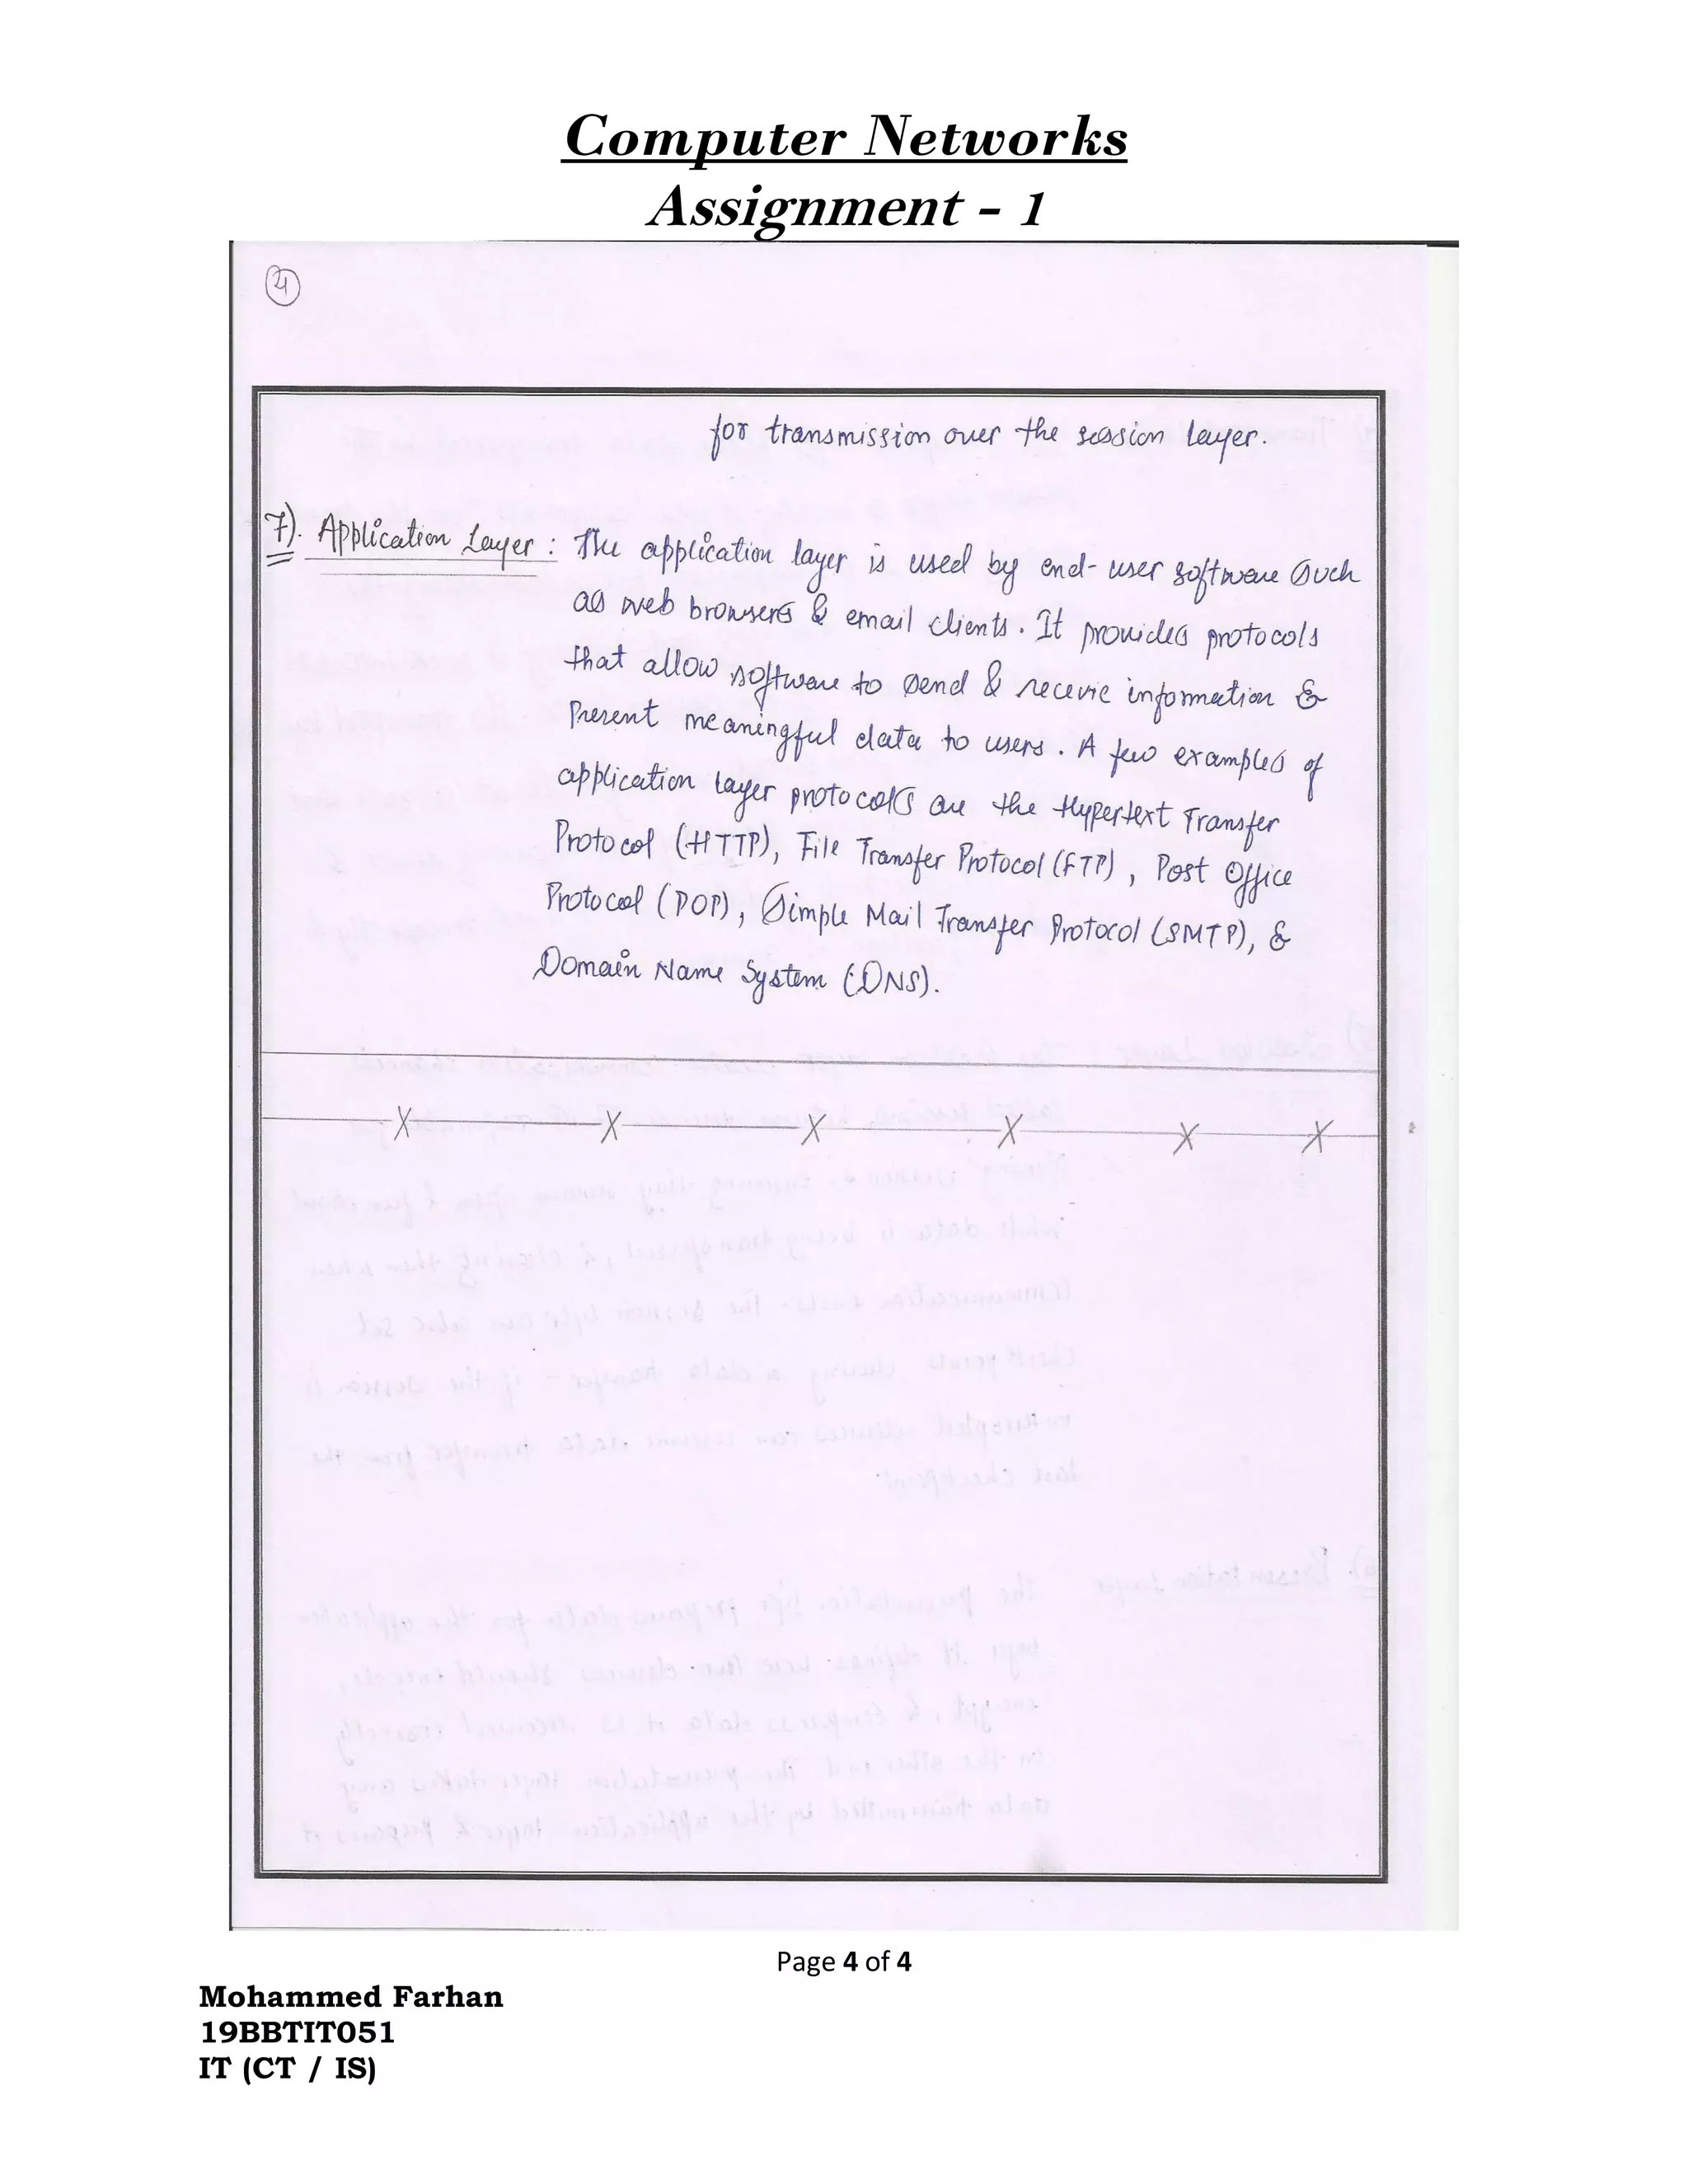 Computer Networks
Assignment - 1
4
for transmission over the session layer.
7). Application Layer : The application layer is used by end-user software such
as web browsers & email clients. It provides protocols
that allow software to send & recevie information &
Present meaningful data to users. A few examples of
application layer protocols are the Hypertext Transfer
Protocol (HTTP), File Transfer Protocol (FTP), Post Office
Protocol (POP), Simple Mail Transfer Protocol (SMTP), &
Domain Name System (DNS).
X X X X X X
Page 4 of 4
Mohammed Farhan
19BBTIT051
IT (CT / IS)